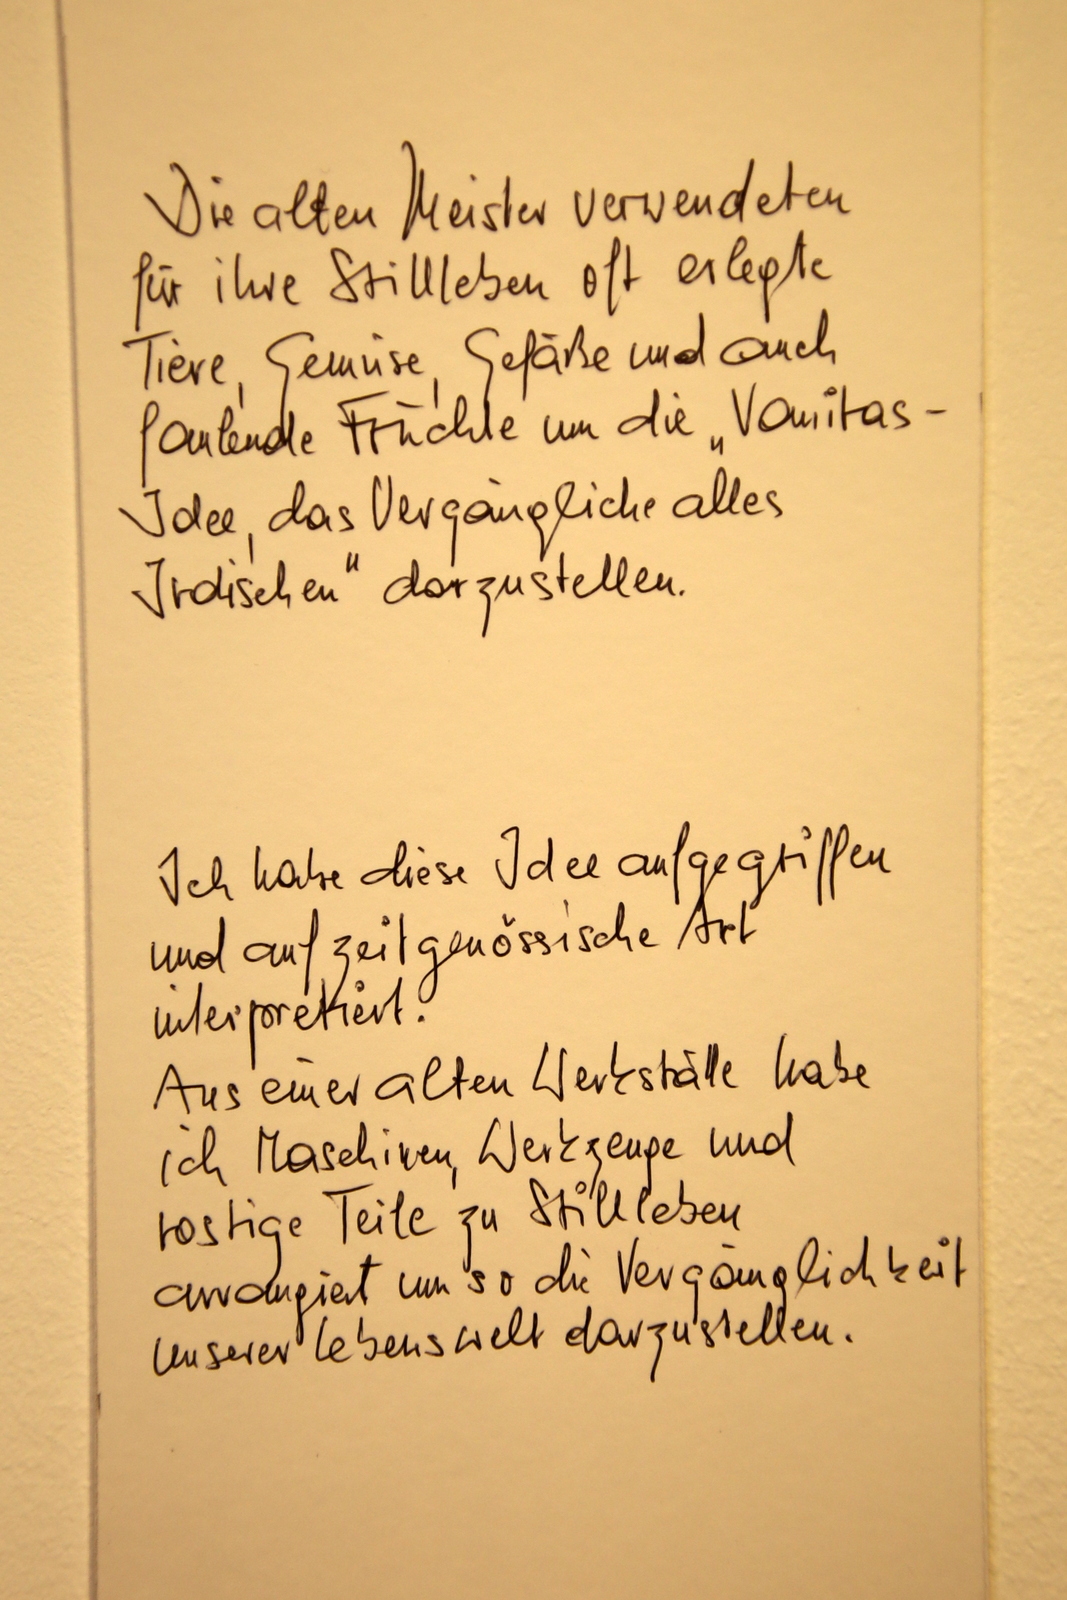 Die alten Meister verwendeten
für ihre Stillleben oft erlegte
Tiere, Gemüse, Gefäße und auch
faulende Früchte um die „Vanitas-
Idee, das Vergängliche alles
Irdischen" darzustellen.
Ich habe diese Idee aufgegriffen
und auf zeitgenössische Art
interpretiert.
Aus einer alten Werkstätte habe
ich Maschinen, Werkzeuge und
rostige Teile zu Stillleben
arrangiert um so die Vergänglichkeit
unserer Lebenswelt darzustellen.